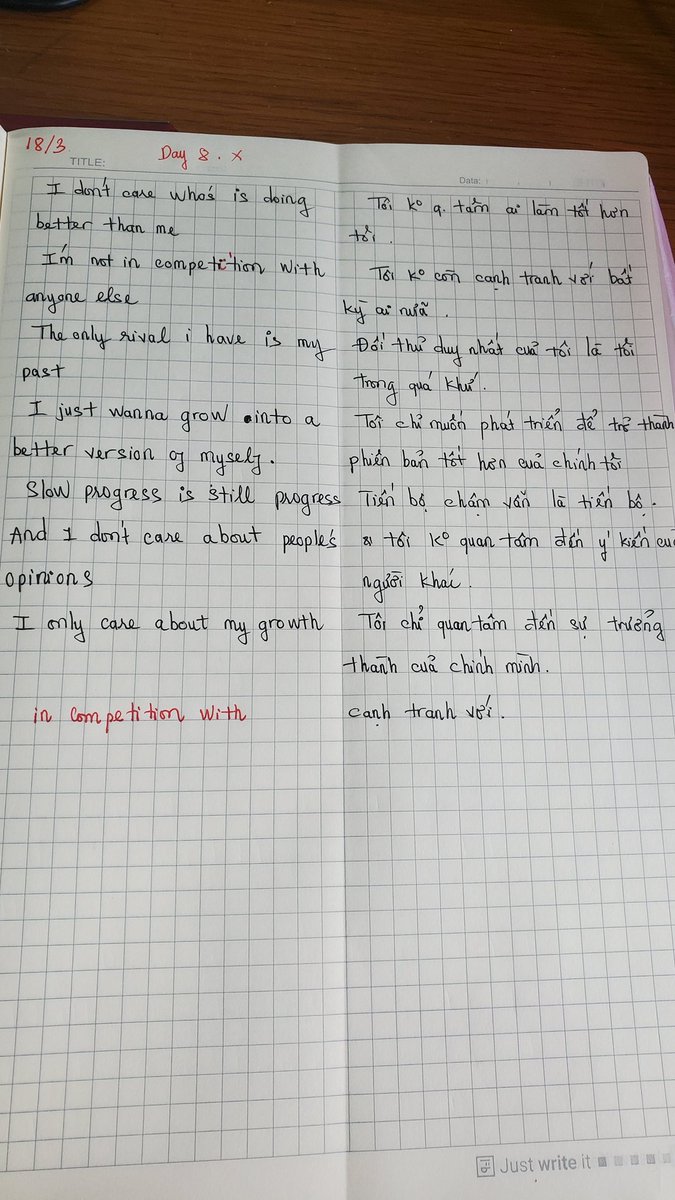 18/3
TITLE:
Day 8. x
Data:
I don't care who's is doing
better than me
I'm not in competition with
anyone else
The only rival i have is my
past
I just wanna grow into a
better version of myself.
Slow progress is still progress
And I don't care about people's
opinions
I only care about my growth
in competition with
Tôi ko q. tâm ai làm tốt hơn
tôi.
Tôi ko còn cạnh tranh với bất
kỳ ai nữa.
Đối thủ duy nhất của tôi là tôi
trong quá khứ.
Tôi chỉ muốn phát triển để trở thành
phiên bản tốt hơn của chính tôi
Tiến bộ chậm vẫn là tiến bộ.
tôi ko quan tâm đến ý kiến của
người khác.
Tôi chỉ quan tâm đến sự trưởng
thành của chính mình.
cạnh tranh với.
Just write it